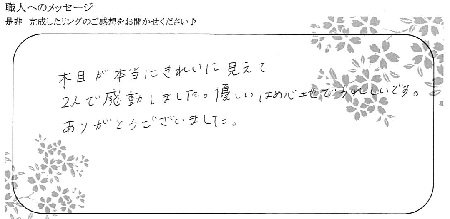 職人へのメッセージ
是非 完成したリングのご感想をお聞かせください♪
木目が本当にきれいに見えて
2人で感動しました。優しいはめ心地でうれしいです。
ありがとうございました。